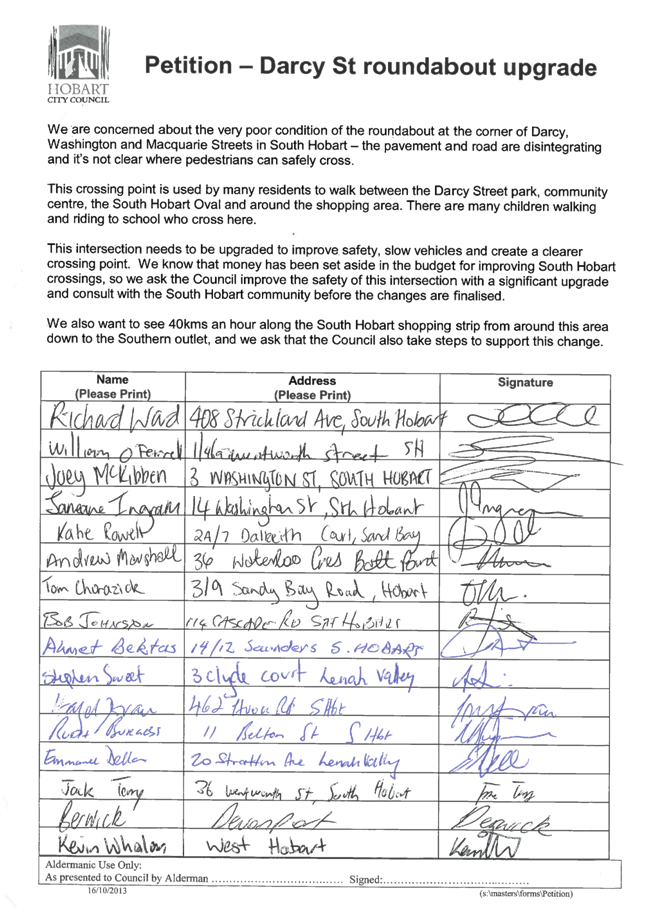 HOBART
CITY COUNCIL
Petition – Darcy St roundabout upgrade
We are concerned about the very poor condition of the roundabout at the corner of Darcy,
Washington and Macquarie Streets in South Hobart – the pavement and road are disintegrating
and it's not clear where pedestrians can safely cross.
This crossing point is used by many residents to walk between the Darcy Street park, community
centre, the South Hobart Oval and around the shopping area. There are many children walking
and riding to school who cross here.
This intersection needs to be upgraded to improve safety, slow vehicles and create a clearer
crossing point. We know that money has been set aside in the budget for improving South Hobart
crossings, so we ask the Council improve the safety of this intersection with a significant upgrade
and consult with the South Hobart community before the changes are finalised.
We also want to see 40kms an hour along the South Hobart shopping strip from around this area
down to the Southern outlet, and we ask that the Council also take steps to support this change.
Name Address Signature
(Please Print) (Please Print)
Richard 408 Strickland Ave, South Hobart
William street SH
Joey McKibben 3 WASHINGTON ST, SOUTH HOBART
Ingram 14 Washington St, Sth Hobart
2A/7 Court, Sand Bay
Andrew Marshall 36 Waterloo Cres
Tom 3/9 Sandy Bay Road, Hobart
BOB JOHNSON
Ahmet Bektas 14/12 Saunders S. HOBART
Stephen Sweet 3 Clyde court Lenah Valley
462 SHbt
Burgess 11 St S Hbt
Emmanuel 20 Ave Lenah Valley
Jack 36 Wentworth St, South Hobart
Berwick Devonport Berwick
Kevin West Hobart
Aldermanic Use Only:
As presented to Council by Alderman ........ Signed: ........
16/10/2013 (s:\masters\forms\Petition)